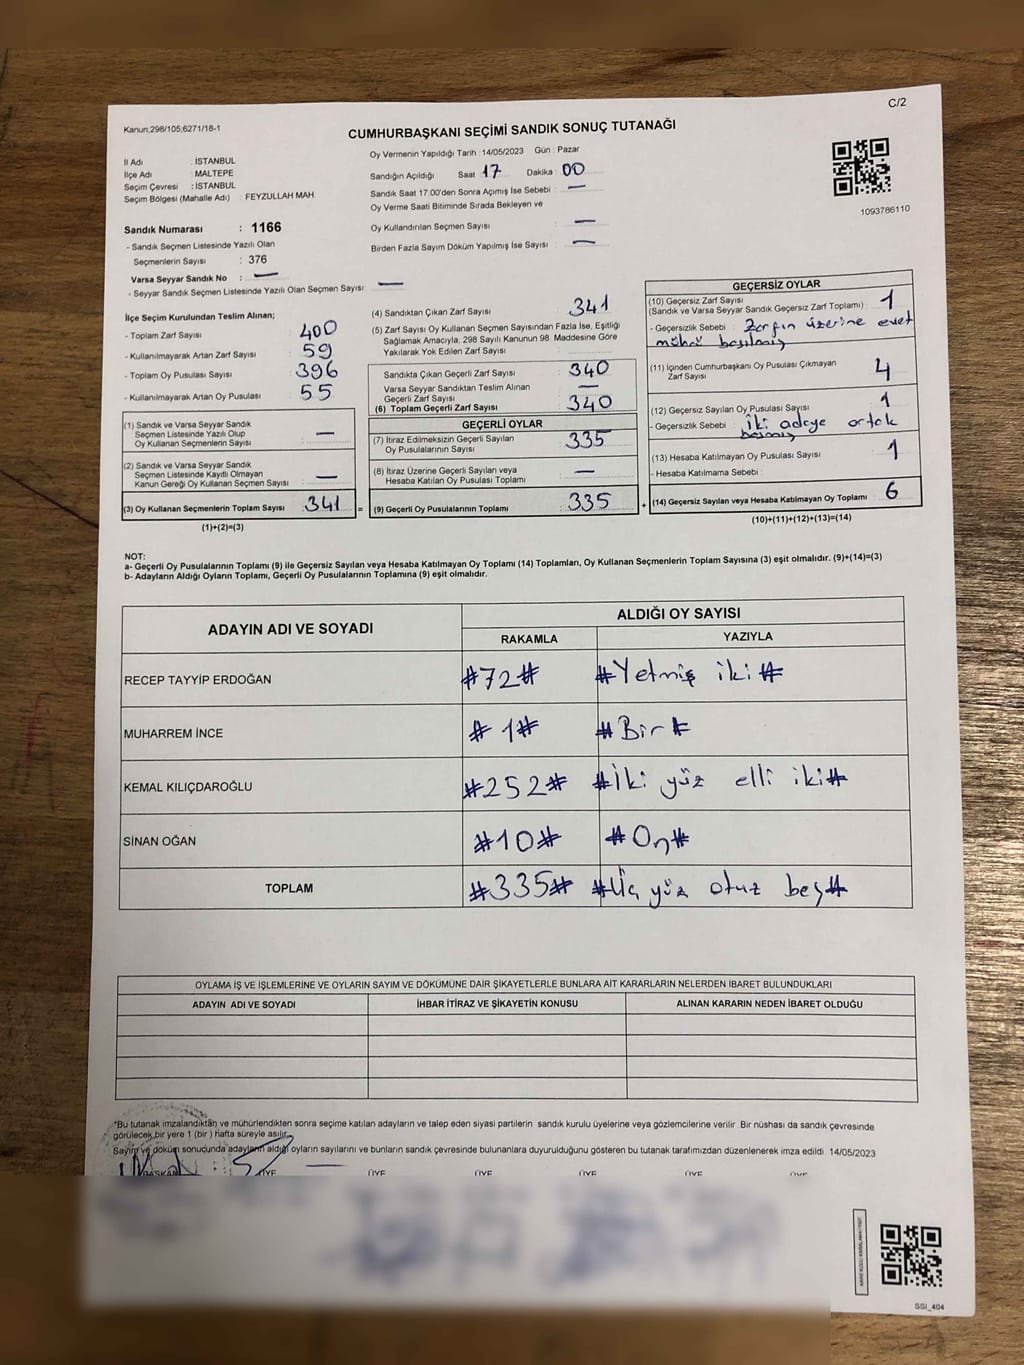 C/2
Kanun:298/105;6271/18-1
CUMHURBAŞKANI SEÇİMİ SANDIK SONUÇ TUTANAĞI
İl Adı : İSTANBUL
İlçe Adı : MALTEPE
Seçim Çevresi : İSTANBUL
Seçim Bölgesi (Mahalle Adı) : FEYZULLAH MAH.
Oy Vermenin Yapıldığı Tarih : 14/05/2023 Gün : Pazar
Sandığın Açıldığı Saat 17 Dakika 00
Sandık Saat 17:00'den Sonra Açımış İse Sebebi : —
Oy Verme Saati Bitiminde Sırada Bekleyen ve
Oy Kullandırılan Seçmen Sayısı : —
Birden Fazla Sayım Döküm Yapılmış İse Sayısı : —
1093786110
Sandık Numarası : 1166
- Sandık Seçmen Listesinde Yazılı Olan
Seçmenlerin Sayısı : 376
Varsa Seyyar Sandık No : —
- Seyyar Sandık Seçmen Listesinde Yazılı Olan Seçmen Sayısı : —
İlçe Seçim Kurulundan Teslim Alınan;
- Toplam Zarf Sayısı : 400
- Kullanılmayarak Artan Zarf Sayısı : 59
- Toplam Oy Pusulası Sayısı : 396
- Kullanılmayarak Artan Oy Pusulası : 55
(1) Sandık ve Varsa Seyyar Sandık
Seçmen Listesinde Yazılı Olup
Oy Kullanan Seçmenlerin Sayısı : —
(2) Sandık ve Varsa Seyyar Sandık
Seçmen Listesinde Kayıtlı Olmayan
Kanun Gereği Oy Kullanan Seçmen Sayısı : —
(3) Oy Kullanan Seçmenlerin Toplam Sayısı : 341 =
(1)+(2)=(3)
(4) Sandıktan Çıkan Zarf Sayısı : 341
(5) Zarf Sayısı Oy Kullanan Seçmen Sayısından Fazla İse, Eşitliği
Sağlamak Amacıyla, 298 Sayılı Kanunun 98. Maddesine Göre
Yakılarak Yok Edilen Zarf Sayısı :
Sandıkta Çıkan Geçerli Zarf Sayısı : 340
Varsa Seyyar Sandıktan Teslim Alınan
Geçerli Zarf Sayısı : —
(6) Toplam Geçerli Zarf Sayısı : 340
GEÇERLİ OYLAR
(7) İtiraz Edilmeksizin Geçerli Sayılan
Oy Pusulalarının Sayısı : 335
(8) İtiraz Üzerine Geçerli Sayılan veya
Hesaba Katılan Oy Pusulası Toplamı : —
(9) Geçerli Oy Pusulalarının Toplamı : 335 +
GEÇERSİZ OYLAR
(10) Geçersiz Zarf Sayısı : 1
(Sandık ve Varsa Seyyar Sandık Geçersiz Zarf Toplamı)
- Geçersizlik Sebebi : Zarfın üzerine evet
mührü basılmış
(11) İçinden Cumhurbaşkanı Oy Pusulası Çıkmayan
Zarf Sayısı : 4
(12) Geçersiz Sayılan Oy Pusulası Sayısı : 1
- Geçersizlik Sebebi : iki adaya ortak
basmış
(13) Hesaba Katılmayan Oy Pusulası Sayısı : 1
- Hesaba Katılmama Sebebi :
(14) Geçersiz Sayılan veya Hesaba Katılmayan Oy Toplamı : 6
(10)+(11)+(12)+(13)=(14)
NOT:
a- Geçerli Oy Pusulalarının Toplamı (9) ile Geçersiz Sayılan veya Hesaba Katılmayan Oy Toplamı (14) Toplamları, Oy Kullanan Seçmenlerin Toplam Sayısına (3) eşit olmalıdır. (9)+(14)=(3)
b- Adayların Aldığı Oyların Toplamı, Geçerli Oy Pusulalarının Toplamına (9) eşit olmalıdır.
ADAYIN ADI VE SOYADI ALDIĞI OY SAYISI
RAKAMLA YAZIYLA
RECEP TAYYİP ERDOĞAN #72# #Yetmiş iki#
MUHARREM İNCE #1# #Bir#
KEMAL KILIÇDAROĞLU #252# #İki yüz elli iki#
SİNAN OĞAN #10# #On#
TOPLAM #335# #Üç yüz otuz beş#
OYLAMA İŞ VE İŞLEMLERİNE VE OYLARIN SAYIM VE DÖKÜMÜNE DAİR ŞİKAYETLERLE BUNLARA AİT KARARLARIN NELERDEN İBARET BULUNDUKLARI
ADAYIN ADI VE SOYADI İHBAR İTİRAZ VE ŞİKAYETİN KONUSU ALINAN KARARIN NEDEN İBARET OLDUĞU
*Bu tutanak imzalandıktan ve mühürlendikten sonra seçime katılan adayların ve talep eden siyasi partilerin sandık kurulu üyelerine veya gözlemcilerine verilir. Bir nüshası da sandık çevresinde
görülecek bir yere 1 (bir) hafta süreyle asılır.
Sayım ve döküm sonucunda adayların aldığı oyların sayılarını ve bunların sandık çevresinde bulunanlara duyurulduğunu gösteren bu tutanak tarafımızdan düzenlenerek imza edildi. 14/05/2023
BAŞKAN ÜYE ÜYE ÜYE ÜYE ÜYE ÜYE
SSI_404